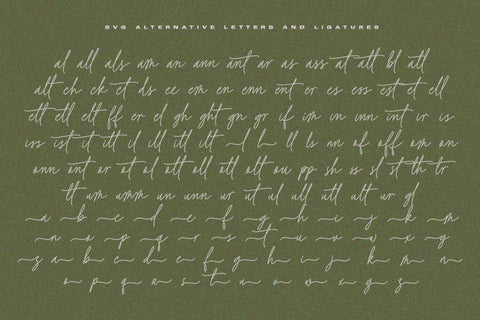 SVG ALTERNATIVE LETTERS AND LIGATURES
al all als am an ann ant ar as ass at att bl all
alt ch ck et ds ee em en enn ent er es ess est et ell
ett ell elt ff er el gh ght gn gr if im in inn int ir is
iss ist it itt il ill itt ilt l ll ls nn of off om on
onn ont or ot ol ott oll ott olt ou pp sh is sl st th tr
tt um umm un unn ur ut ul ull utt ult ur of
a b c d e f g h i j k m
n o p q r s t u v w x y
z a b c d e f g h i j k m n
o p q r s t u v w x y z